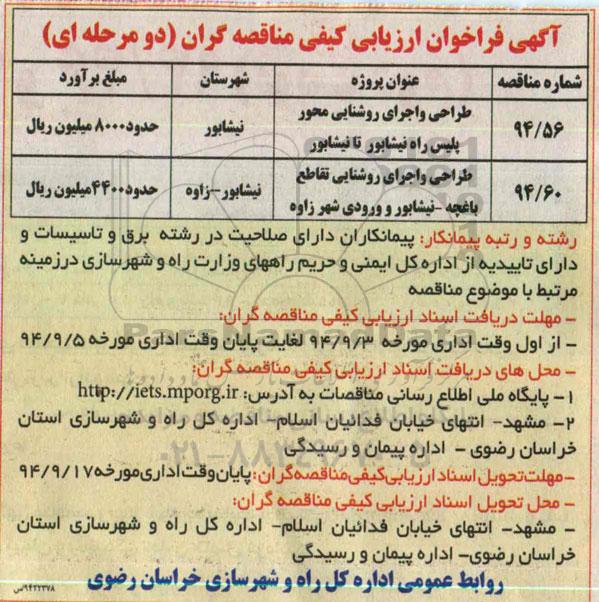 آگهی فراخوان ارزیابی کیفی مناقصه گران (دو مرحله ای)
شماره مناقصه | عنوان پروژه | شهرستان | مبلغ برآورد
۹۴/۵۶ | طراحی واجرای روشنایی محور پلیس راه نیشابور تا نیشابور | نیشابور | حدود۸۰۰۰ میلیون ریال
۹۴/۶۰ | طراحی واجرای روشنایی تقاطع باغچه -نیشابور و ورودی شهر زاوه | نیشابور-زاوه | حدود۴۴۰۰میلیون ریال
رشته و رتبه پیمانکار: پیمانکاران دارای صلاحیت در رشته برق و تاسیسات و
دارای تاییدیه از اداره کل ایمنی و حریم راههای وزارت راه و شهرسازی درزمینه
مرتبط با موضوع مناقصه
- مهلت دریافت اسناد ارزیابی کیفی مناقصه گران:
- از اول وقت اداری مورخه ۹۴/۹/۳ لغایت پایان وقت اداری مورخه ۹۴/۹/۵
- محل های دریافت اسناد ارزیابی کیفی مناقصه گران:
۱- پایگاه ملی اطلاع رسانی مناقصات به آدرس: http://iets.mporg.ir
۲- مشهد- انتهای خیابان فدائیان اسلام- اداره کل راه و شهرسازی استان
خراسان رضوی - اداره پیمان و رسیدگی
-مهلت تحویل اسناد ارزیابی کیفی مناقصه گران: پایان وقت اداری مورخه ۹۴/۹/۱۷
- محل تحویل اسناد ارزیابی کیفی مناقصه گران:
- مشهد- انتهای خیابان فدائیان اسلام- اداره کل راه و شهرسازی استان
خراسان رضوی- اداره پیمان و رسیدگی
روابط عمومی اداره کل راه و شهرسازی خراسان رضوی
۹۴۲۲۳۷۸/ص
ParsNamadData
۰۲۱-۸۸۳۴۹۶۷۰-۵